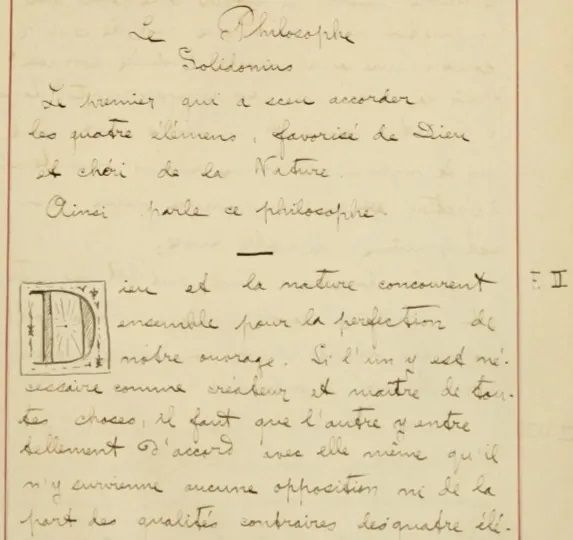 Le Philosophe
Solidonius
Le premier qui a sceu accorder
les quatre élémens, favorisé de Dieu
et chéri de la Nature.
Ainsi parle ce philosophe
Dieu et la nature concourent
ensemble pour la perfection de
notre ouvrage. Si l'un y est né-
cessaire comme créateur et maitre de tou-
tes choses, il faut que l'autre y entre
tellement d'accord avec elle même qu'il
n'y survienne aucune opposition ni de la
part des qualités contraires des quatre élé-
F. II